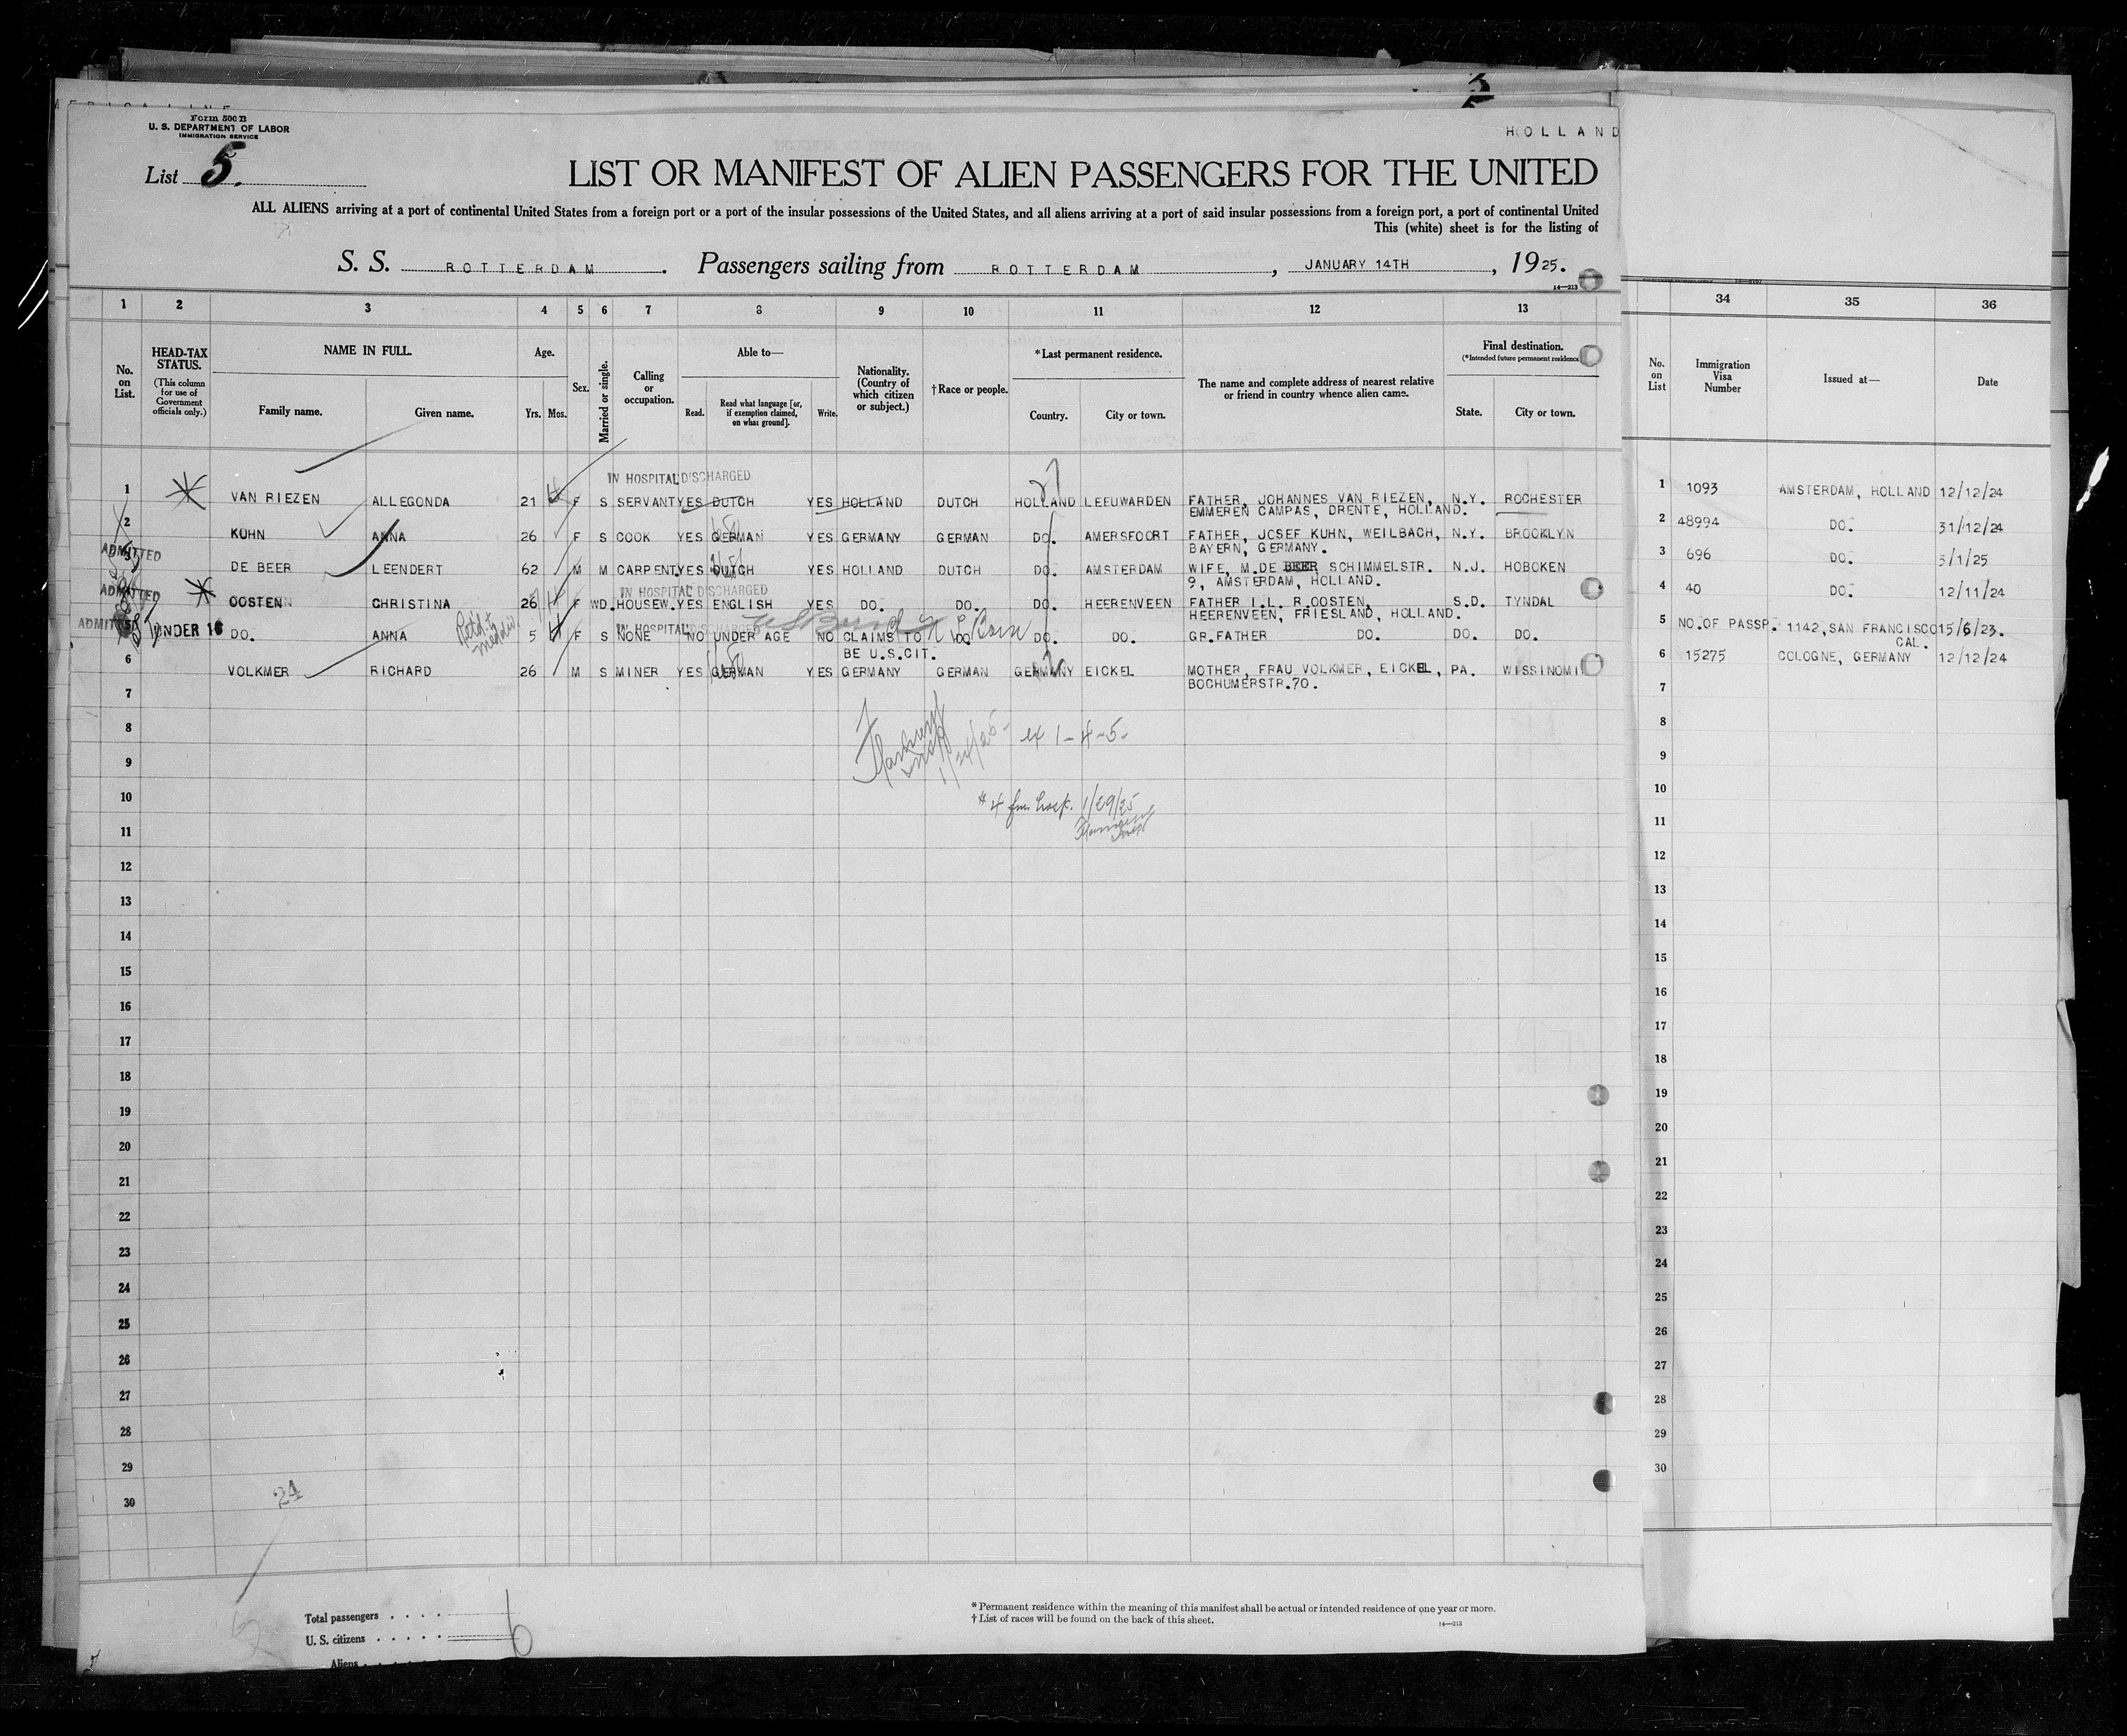 Form 500 B
U. S. DEPARTMENT OF LABOR
IMMIGRATION SERVICE
HOLLAND
List 5.
LIST OR MANIFEST OF ALIEN PASSENGERS FOR THE UNITED
ALL ALIENS arriving at a port of continental United States from a foreign port or a port of the insular possessions of the United States, and all aliens arriving at a port of said insular possessions from a foreign port, a port of continental United
This (white) sheet is for the listing of
S. S. ROTTERDAM. Passengers sailing from ROTTERDAM, JANUARY 14TH, 1925.
14—213
1 2 3 4 5 6 7 8 9 10 11 12 13 34 35 36
No. on List.
HEAD-TAX STATUS.
(This column for use of Government officials only.)
NAME IN FULL.
Family name. Given name.
Age.
Yrs. Mos.
Sex.
Married or single.
Calling or occupation.
Able to—
Read. Read what language [or, if exemption claimed, on what ground]. Write.
Nationality. (Country of which citizen or subject.)
†Race or people.
*Last permanent residence.
Country. City or town.
The name and complete address of nearest relative or friend in country whence alien came.
Final destination.
(*Intended future permanent residence
State. City or town.
No. on List
Immigration Visa Number
Issued at—
Date
IN HOSPITAL DISCHARGED
1 VAN RIEZEN ALLEGONDA 21 F S SERVANT YES DUTCH YES HOLLAND DUTCH HOLLAND LEEUWARDEN FATHER, JOHANNES VAN RIEZEN, N.Y. ROCHESTER 1 1093 AMSTERDAM, HOLLAND 12/12/24
EMMEREN CAMPAS, DRENTE, HOLLAND.
2 KUHN ANNA 26 F S COOK YES GERMAN YES GERMANY GERMAN DO. AMERSFOORT FATHER, JOSEF KUHN, WEILBACH, N.Y. BROOKLYN 2 48994 DO. 31/12/24
BAYERN, GERMANY.
ADMITTED
3 DE BEER LEENDERT 62 M M CARPENT. YES DUTCH YES HOLLAND DUTCH DO. AMSTERDAM WIFE, M.DE BEER SCHIMMELSTR. N.J. HOBOKEN 3 696 DO. 3/1/25
9, AMSTERDAM, HOLLAND.
ADMITTED
IN HOSPITAL DISCHARGED
OOSTEN CHRISTINA 26 F WD. HOUSEW. YES ENGLISH YES DO. DO. DO. HEERENVEEN FATHER I.L. R.OOSTEN, S.D. TYNDAL 4 40 DO. 12/11/24
HEERENVEEN, FRIESLAND, HOLLAND.
ADMITTED
IN HOSPITAL DISCHARGED
5 UNDER 16 DO. ANNA 5 F S NONE NO UNDER AGE NO CLAIMS TO DO. DO. DO. GR.FATHER DO. DO. DO. 5 NO.OF PASSP. 1142,SAN FRANCISCO 15/6/23.
BE U.S.CIT. CAL.
6 VOLKMER RICHARD 26 M S MINER YES GERMAN YES GERMANY GERMAN GERMANY EICKEL MOTHER, FRAU VOLKMER, EICKEL, PA. WISSINOMI 6 15275 COLOGNE, GERMANY 12/12/24
BOCHUMERSTR.70.
7 7
8 1/24/25 1-4-5- 8
9 9
10 * 4 fm. hosp. 1/29/25 10
11 11
12 12
13 13
14 14
15 15
16 16
17 17
18 18
19 19
20 20
21 21
22 22
23 23
24 24
25 25
26 26
27 27
28 28
29 29
30 30
24
Total passengers . . . . 6
U. S. citizens . . . . .
Aliens . . . . . .
* Permanent residence within the meaning of this manifest shall be actual or intended residence of one year or more.
† List of races will be found on the back of this sheet.
14—213